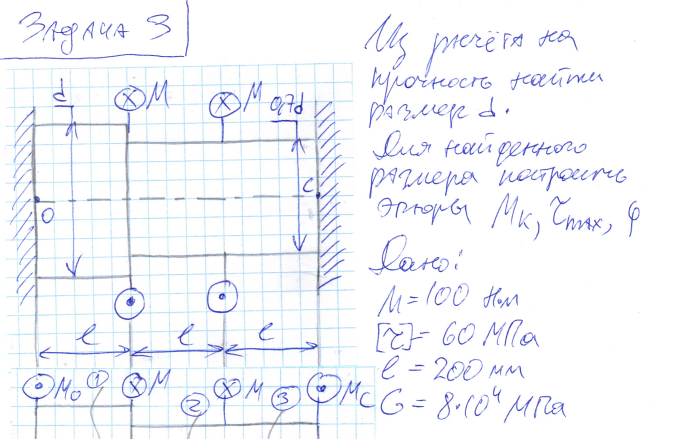 Задача 3
Из расчёта на
прочность найти
размер d.
Для найденного
размера построить
эпюры Mк, τmax, φ
Дано:
M=100 Н·м
[τ]= 60 МПа
ℓ = 200 мм
G = 8·10⁴ МПа
d M M 0,7d
O C
ℓ ℓ ℓ
M₀ 1 M 2 M 3 Mc